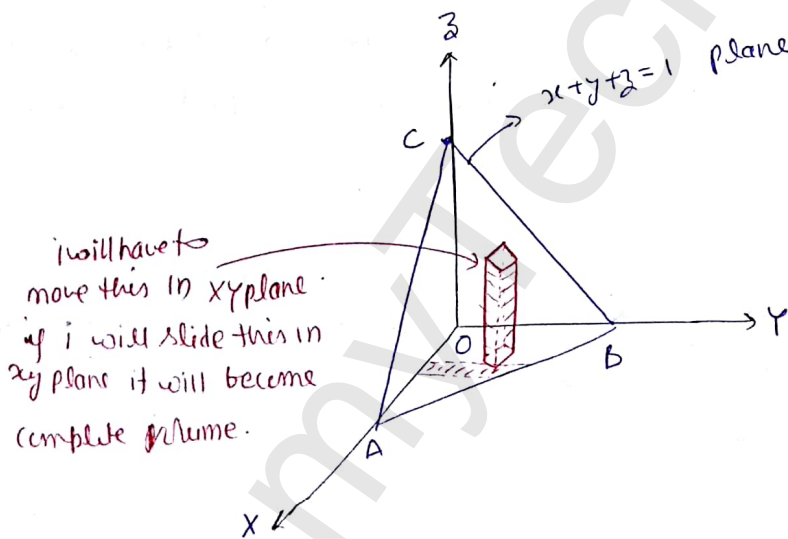 Z
x+y+z=1 plane
C
i will have to
move this in xy plane.
if i will slide this in
xy plane it will become
complete volume.
O
Y
B
A
X
myTec